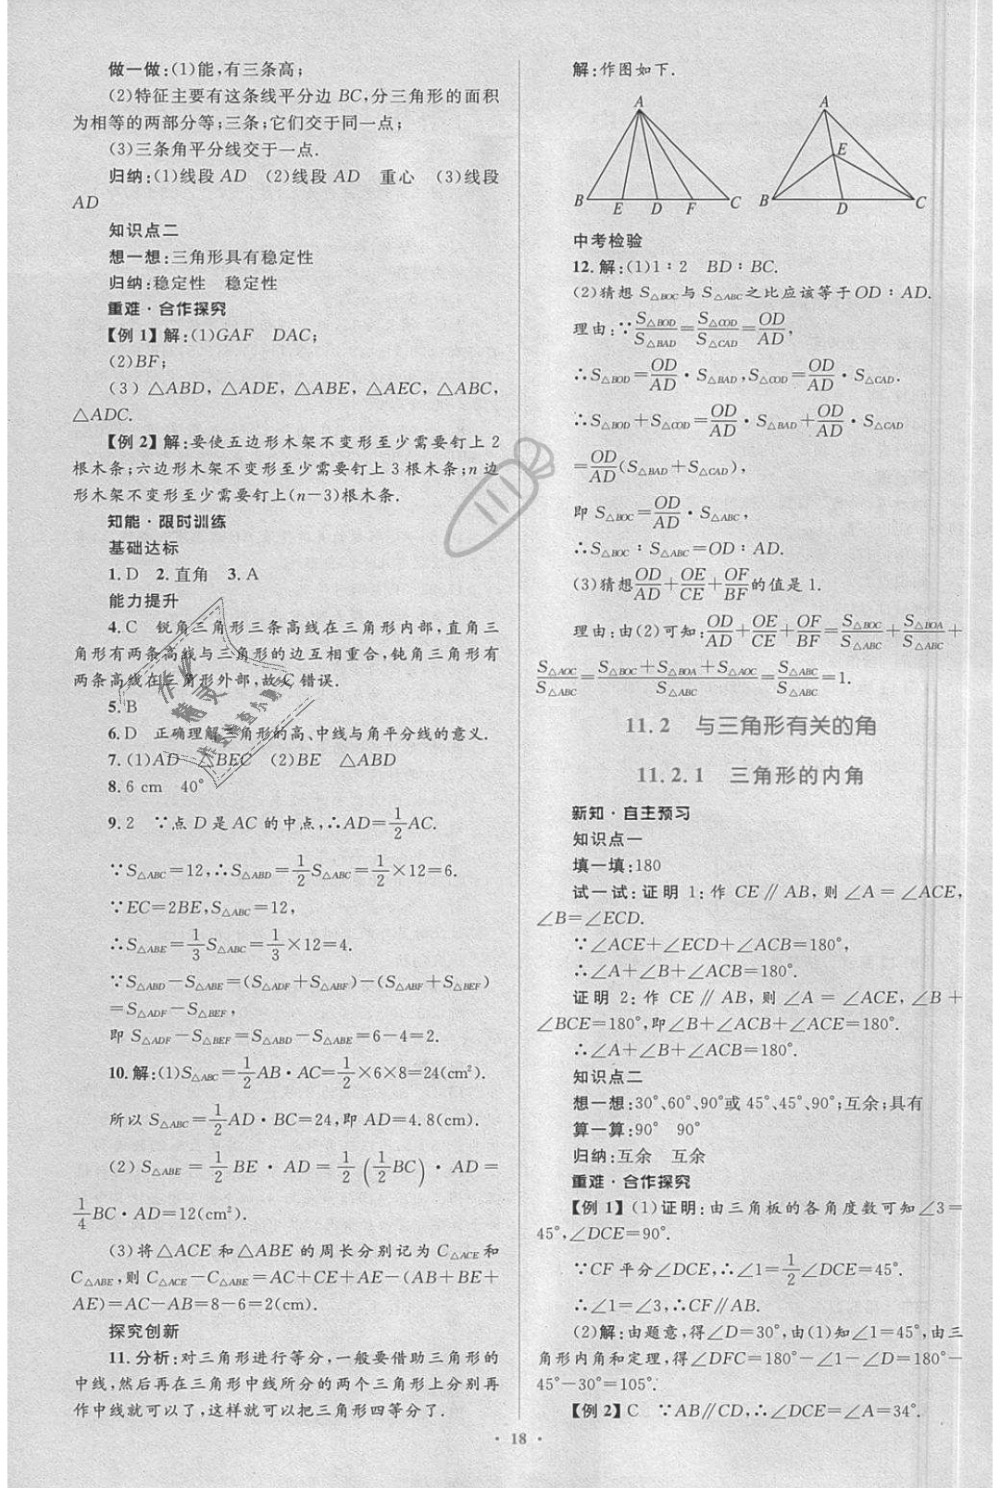 做一做:(1)能,有三条高;
(2)特征主要有这条线平分边 BC,分三角形的面积
为相等的两部分等;三条;它们交于同一点;
(3)三条角平分线交于一点.
归纳:(1)线段 AD (2)线段 AD 重心 (3)线段
AD
知识点二
想一想:三角形具有稳定性
归纳:稳定性 稳定性
重难·合作探究
【例 1】解:(1)GAF DAC;
(2)BF;
(3) △ABD, △ADE, △ABE, △AEC, △ABC,
△ADC.
【例 2】解:要使五边形木架不变形至少需要钉上 2
根木条;六边形木架不变形至少需要钉上 3 根木条;n 边
形木架不变形至少需要钉上(n-3)根木条.
知能·限时训练
基础达标
1.D 2.直角 3.A
能力提升
4.C 锐角三角形三条高线在三角形内部,直角三
角形有两条高线与三角形的边互相重合,钝角三角形有
两条高线在三角形外部,故 C 错误.
5.B
6.D 正确理解三角形的高、中线与角平分线的意义.
7.(1)AD △BEC (2)BE △ABD
8.6 cm 40°
9.2 ∵点 D 是 AC 的中点,∴AD=1/2 AC.
∵S△ABC=12,∴S△ABD=1/2 S△ABC=1/2×12=6.
∵EC=2BE,S△ABC=12,
∴S△ABE=1/3 S△ABC=1/3×12=4.
∵S△ABD-S△ABE=(S△ADF+S△ABF)-(S△ABF+S△BEF)
=S△ADF-S△BEF,
即 S△ADF-S△BEF=S△ABD-S△ABE=6-4=2.
10.解:(1)S△ABC=1/2 AB·AC=1/2×6×8=24(cm²).
所以 S△ABC=1/2 AD·BC=24,即 AD=4.8(cm).
(2) S△ABE = 1/2 BE·AD = 1/2 (1/2 BC)·AD =
1/4 BC·AD=12(cm²).
(3)将△ACE 和△ABE 的周长分别记为 C△ACE和
C△ABE,则 C△ACE-C△ABE=AC+CE+AE-(AB+BE+
AE)=AC-AB=8-6=2(cm).
探究创新
11.分析:对三角形进行等分,一般要借助三角形的
中线,然后再在三角形中线所分的两个三角形上分别再
作中线就可以了,这样就可以把三角形四等分了.
解:作图如下.
A
B E D F C
A
E
B D C
中考检验
12.解:(1)1∶2 BD∶BC.
(2)猜想 S△BOC与 S△ABC之比应该等于 OD∶AD.
理由:∵S△BOD/S△BAD=S△COD/S△CAD=OD/AD,
∴S△BOD=OD/AD·S△BAD,S△COD=OD/AD·S△CAD.
∴S△BOD+S△COD=OD/AD·S△BAD+OD/AD·S△CAD
=OD/AD(S△BAD+S△CAD),
即 S△BOC=OD/AD·S△ABC,
∴S△BOC∶S△ABC=OD∶AD.
(3)猜想OD/AD+OE/CE+OF/BF的值是 1.
理由:由(2)可知:OD/AD+OE/CE+OF/BF=S△BOC/S△ABC+S△BOA/S△ABC+
S△AOC/S△ABC=(S△BOC+S△BOA+S△AOC)/S△ABC=S△ABC/S△ABC=1.
11.2 与三角形有关的角
11.2.1 三角形的内角
新知·自主预习
知识点一
填一填:180
试一试:证明 1:作 CE∥AB,则 ∠A=∠ACE,
∠B=∠ECD.
∵∠ACE+∠ECD+∠ACB=180°,
∴∠A+∠B+∠ACB=180°.
证明 2:作 CE∥AB,则 ∠A=∠ACE,∠B+
∠BCE=180°,即∠B+∠ACB+∠ACE=180°.
∴∠A+∠B+∠ACB=180°.
知识点二
想一想:30°、60°、90°或 45°、45°、90°;互余;具有
算一算:90° 90°
归纳:互余 互余
重难·合作探究
【例 1】(1)证明:由三角板的各角度数可知∠3=
45°,∠DCE=90°.
∵CF 平分∠DCE,∴∠1=1/2∠DCE=45°.
∴∠1=∠3,∴CF∥AB.
(2)解:由题意,得∠D=30°,由(1)知∠1=45°,由三
角形内角和定理,得∠DFC=180°-∠1-∠D=180°-
45°-30°=105°.
【例 2】C ∵AB∥CD,∴∠DCE=∠A=34°.
· 18 ·